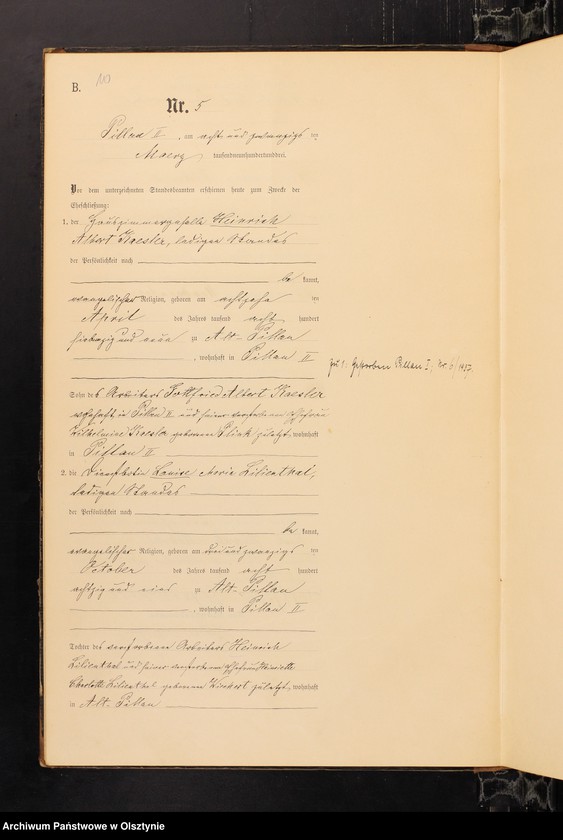 B.
Nr. 5
Pillau II, am acht und zwanzigsten
Maerz tausendneunhundertunddrei.
Vor dem unterzeichneten Standesbeamten erschienen heute zum Zwecke der
Eheschließung:
1. der Hauszimmergeselle Heinrich
Albert Koesler, ledigen Standes
der Persönlichkeit nach
be kannt,
evangelischer Religion, geboren am achtzehn ten
April des Jahres tausend acht hundert
siebenzig und neun zu Alt-Pillau
, wohnhaft in Pillau II
zu 1: Gestorben Pillau I, Nr.
Sohn des Arbeiters Gottfried Albert Koesler
wohnhaft in Pillau II und seiner verstorbenen Ehefrau
Wilhelmine Koesler geborenen Plink zuletzt, wohnhaft
in Pillau II
2. die Dienstbotin Louise Maria Lilienthal,
ledigen Standes
der Persönlichkeit nach
be kannt,
evangelischer Religion, geboren am drei und zwanzigs ten
October des Jahres tausend acht hundert
achtzig und eins zu Alt-Pillau
, wohnhaft in Pillau II
Tochter des verstorbenen Arbeiters Heinrich
Lilienthal und seiner verstorbenen Ehefrau Henriette
Charlotte Lilienthal geborenen zuletzt, wohnhaft
in Alt-Pillau
Archiwum Państwowe w Olsztynie